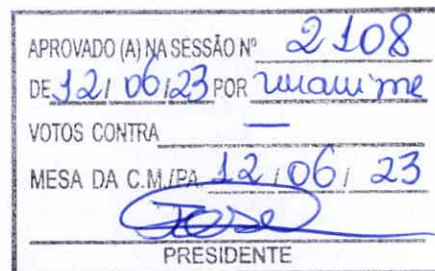 APROVADO (A) NA SESSÃO Nº 2108
DE 12/06/23 POR unanime
VOTOS CONTRA —
MESA DA C.M./PA 12/06/23
PRESIDENTE